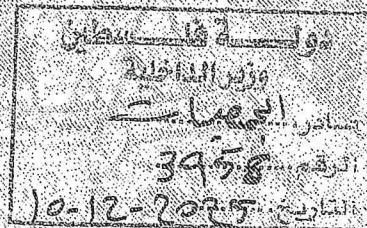 دولة فلسطين
وزير الداخلية
صادر... الجمعيات
الرقم... 3958
التاريخ... 10-12-2025